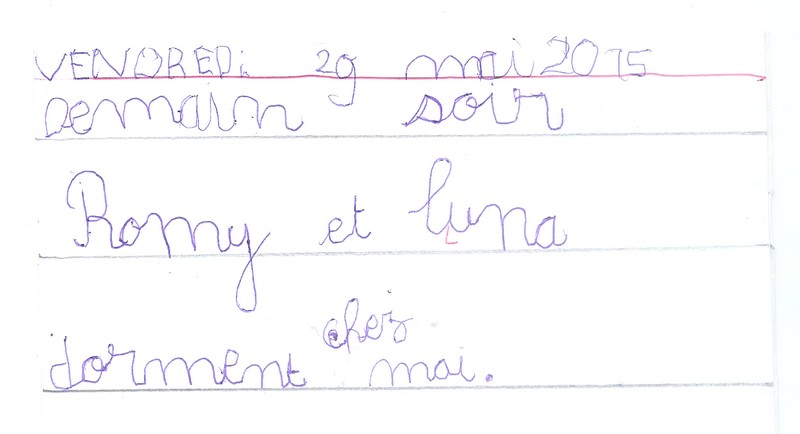 VENDREDi 29 mai 2015
Demain soir
Romy et Luna
chez
dorment moi.